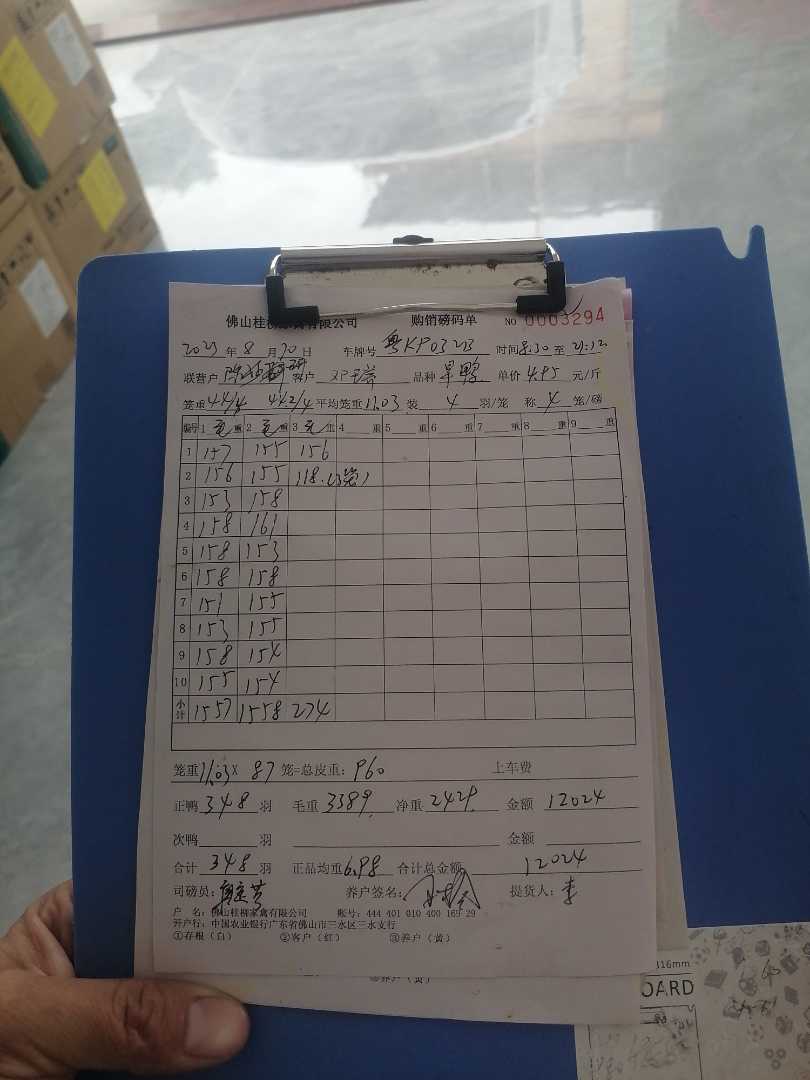 佛山桂柳家禽有限公司 购销磅码单 NO 0003294
2023 年 8 月 30 日 车牌号 粤KP03213 时间 8:30 至
联营户 客户 邓 品种 旱鸭 单价 4.95 元/斤
笼重 44/4 44.2/4 平均笼重 11.03 装 4 羽/笼 称 4 笼/磅
编号 1 毛 重 2 毛 重 3 毛 重 4 重 5 重 6 重 7 重 8 重 9 重
1 157 155 156
2 156 155 118.(3笼)
3 153 158
4 158 161
5 158 153
6 158 158
7 151 155
8 153 155
9 158 154
10 155 154
小计 1557 1558 274
笼重 11.03 X 87 笼=总皮重: 960 上车费
正鸭 348 羽 毛重 3389 净重 2429 金额 12024
次鸭 羽 金额
合计 348 羽 正品均重 6.98 合计总金额 12024
司磅员: 养户签名: 提货人: 李
户 名: 佛山桂柳家禽有限公司 账号: 444 401 010 400 169 29
开户行: 中国农业银行广东省佛山市三水区三水支行
①存根(白) ②客户(红) ③养户(黄)
养户(黄)
316mm
OARD